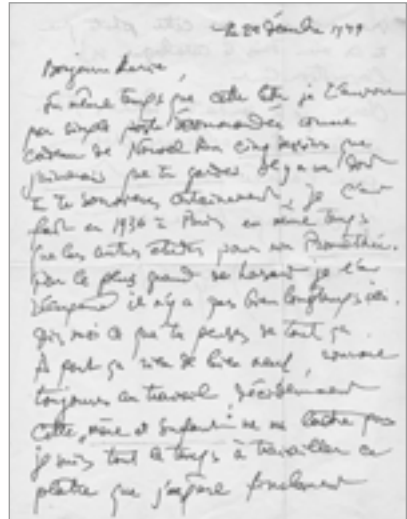 le 20 décembre 1949
Benjamin
En même temps que cette lettre je t'envoie
par simple poste recommandée comme
cadeau de Nouvel An cinq dessins que
j'aimerais que tu gardes. Il y a un dont
tu te souviens certainement, je l'ai
fait en 1936 à Paris en même temps
que les autres études pour un Prométhée.
Par le plus grand des hasards je l'ai
récupéré il n'y a pas bien longtemps ici.
Dis moi ce que tu penses de tout ça.
À part ça rien de bien neuf,
toujours au travail, décidément
cette mère et enfant ne me lâche pas
je suis tout le temps à travailler ce
plâtre que j'espère finalement